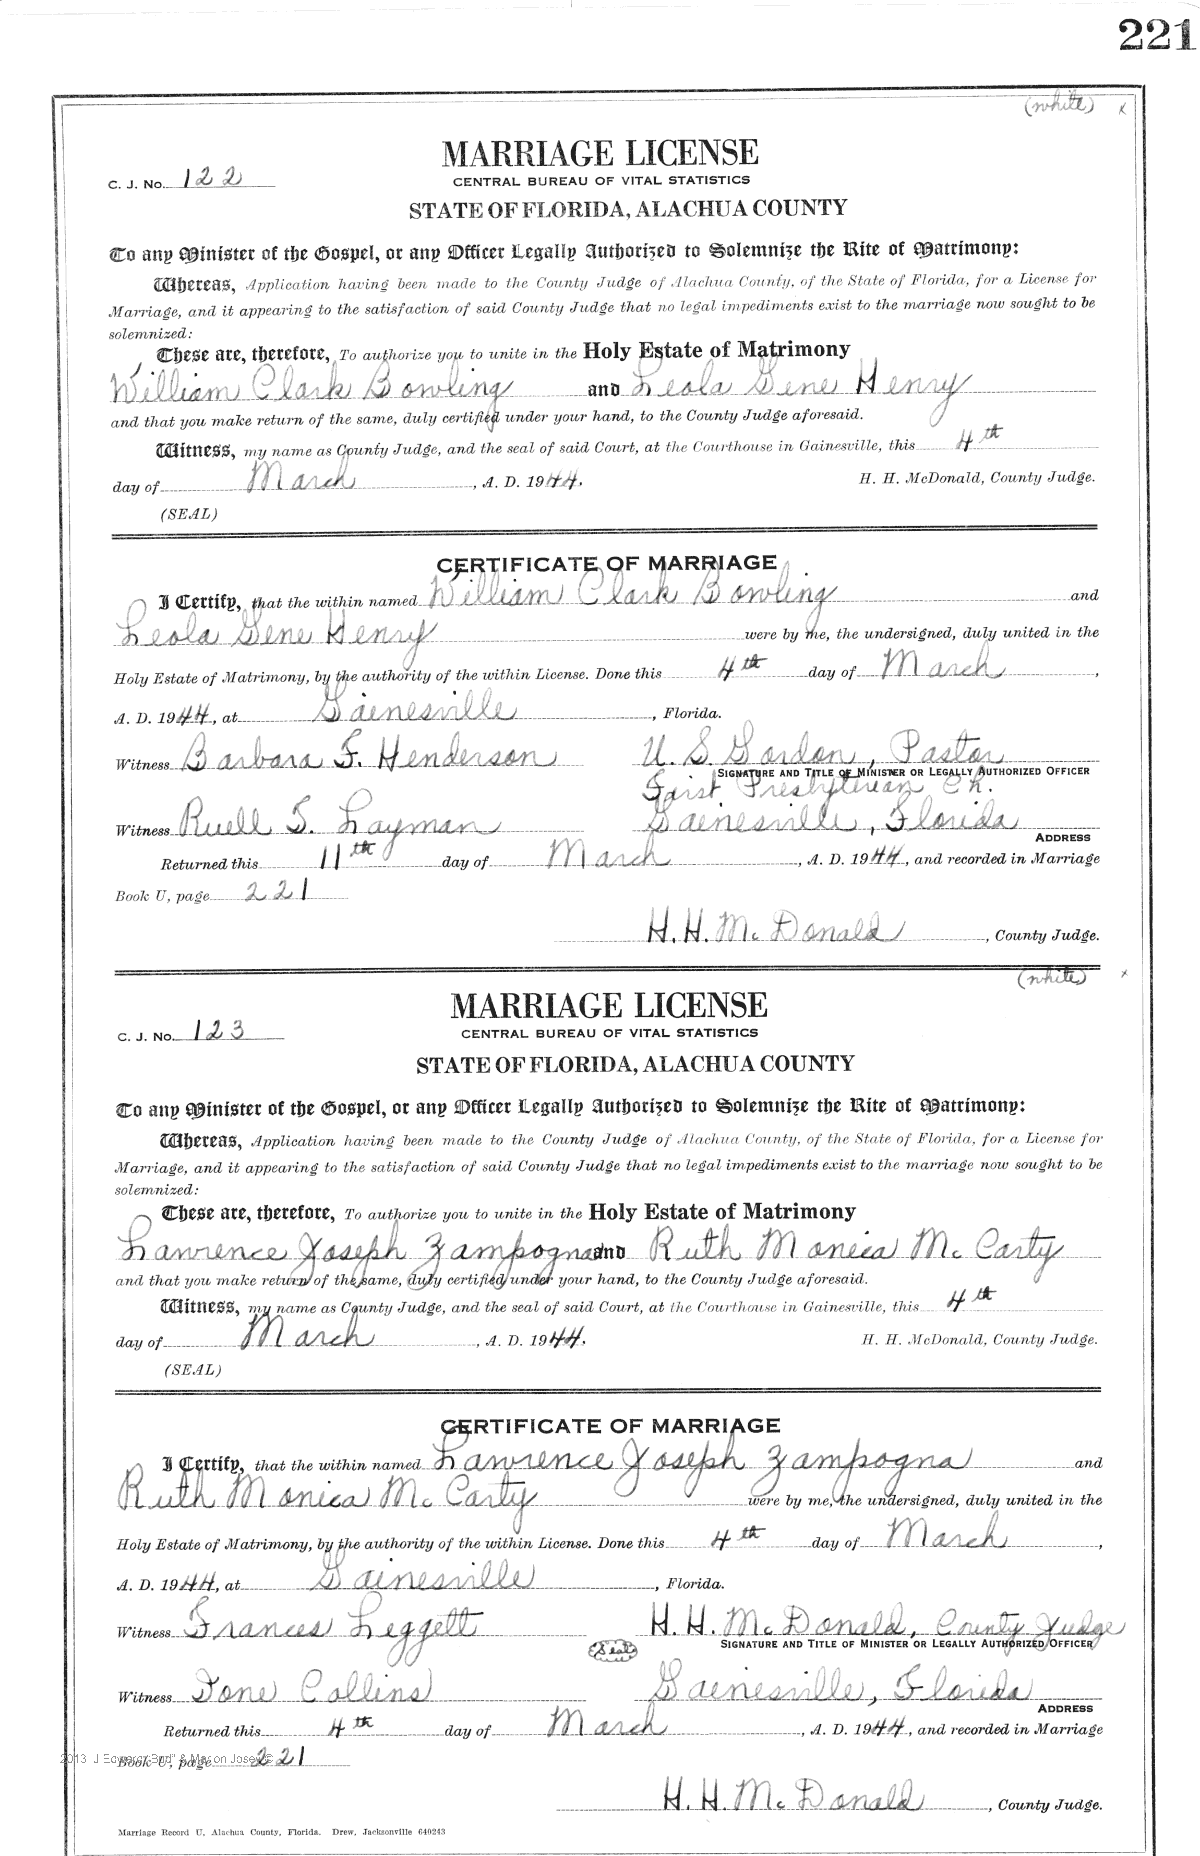 221
(white) x
MARRIAGE LICENSE
C. J. No. 122
CENTRAL BUREAU OF VITAL STATISTICS
STATE OF FLORIDA, ALACHUA COUNTY
To any Minister of the Gospel, or any Officer Legally Authorized to Solemnize the Rite of Matrimony:
Whereas, Application having been made to the County Judge of Alachua County, of the State of Florida, for a License for
Marriage, and it appearing to the satisfaction of said County Judge that no legal impediments exist to the marriage now sought to be
solemnized:
These are, therefore, To authorize you to unite in the Holy Estate of Matrimony
William Clark Bowling and Leola Gene Henry
and that you make return of the same, duly certified under your hand, to the County Judge aforesaid.
Witness, my name as County Judge, and the seal of said Court, at the Courthouse in Gainesville, this 4th
day of March, A. D. 1944. H. H. McDonald, County Judge.
(SEAL)
CERTIFICATE OF MARRIAGE
I Certify, that the within named William Clark Bowling and
Leola Gene Henry were by me, the undersigned, duly united in the
Holy Estate of Matrimony, by the authority of the within License. Done this 4th day of March,
A. D. 1944, at Gainesville, Florida.
Witness Barbara F. Henderson U. S. Gordon, Pastor
SIGNATURE AND TITLE OF MINISTER OR LEGALLY AUTHORIZED OFFICER
First Presbyterian Ch.
Witness Ruell S. Layman Gainesville, Florida
ADDRESS
Returned this 11th day of March, A. D. 1944, and recorded in Marriage
Book U, page 221
H. H. McDonald, County Judge.
(white) x
MARRIAGE LICENSE
C. J. No. 123
CENTRAL BUREAU OF VITAL STATISTICS
STATE OF FLORIDA, ALACHUA COUNTY
To any Minister of the Gospel, or any Officer Legally Authorized to Solemnize the Rite of Matrimony:
Whereas, Application having been made to the County Judge of Alachua County, of the State of Florida, for a License for
Marriage, and it appearing to the satisfaction of said County Judge that no legal impediments exist to the marriage now sought to be
solemnized:
These are, therefore, To authorize you to unite in the Holy Estate of Matrimony
Lawrence Joseph Zampogna and Ruth Monica McCarty
and that you make return of the same, duly certified under your hand, to the County Judge aforesaid.
Witness, my name as County Judge, and the seal of said Court, at the Courthouse in Gainesville, this 4th
day of March, A. D. 1944. H. H. McDonald, County Judge.
(SEAL)
CERTIFICATE OF MARRIAGE
I Certify, that the within named Lawrence Joseph Zampogna and
Ruth Monica McCarty were by me, the undersigned, duly united in the
Holy Estate of Matrimony, by the authority of the within License. Done this 4th day of March,
A. D. 1944, at Gainesville, Florida.
Witness Frances Leggett H. H. McDonald, County Judge
(Seal) SIGNATURE AND TITLE OF MINISTER OR LEGALLY AUTHORIZED OFFICER
Witness Ione Collins Gainesville, Florida
ADDRESS
Returned this 4th day of March, A. D. 1944, and recorded in Marriage
Book U, page 221
2013 J
H. H. McDonald, County Judge.
Marriage Record U, Alachua County, Florida. Drew, Jacksonville 640243